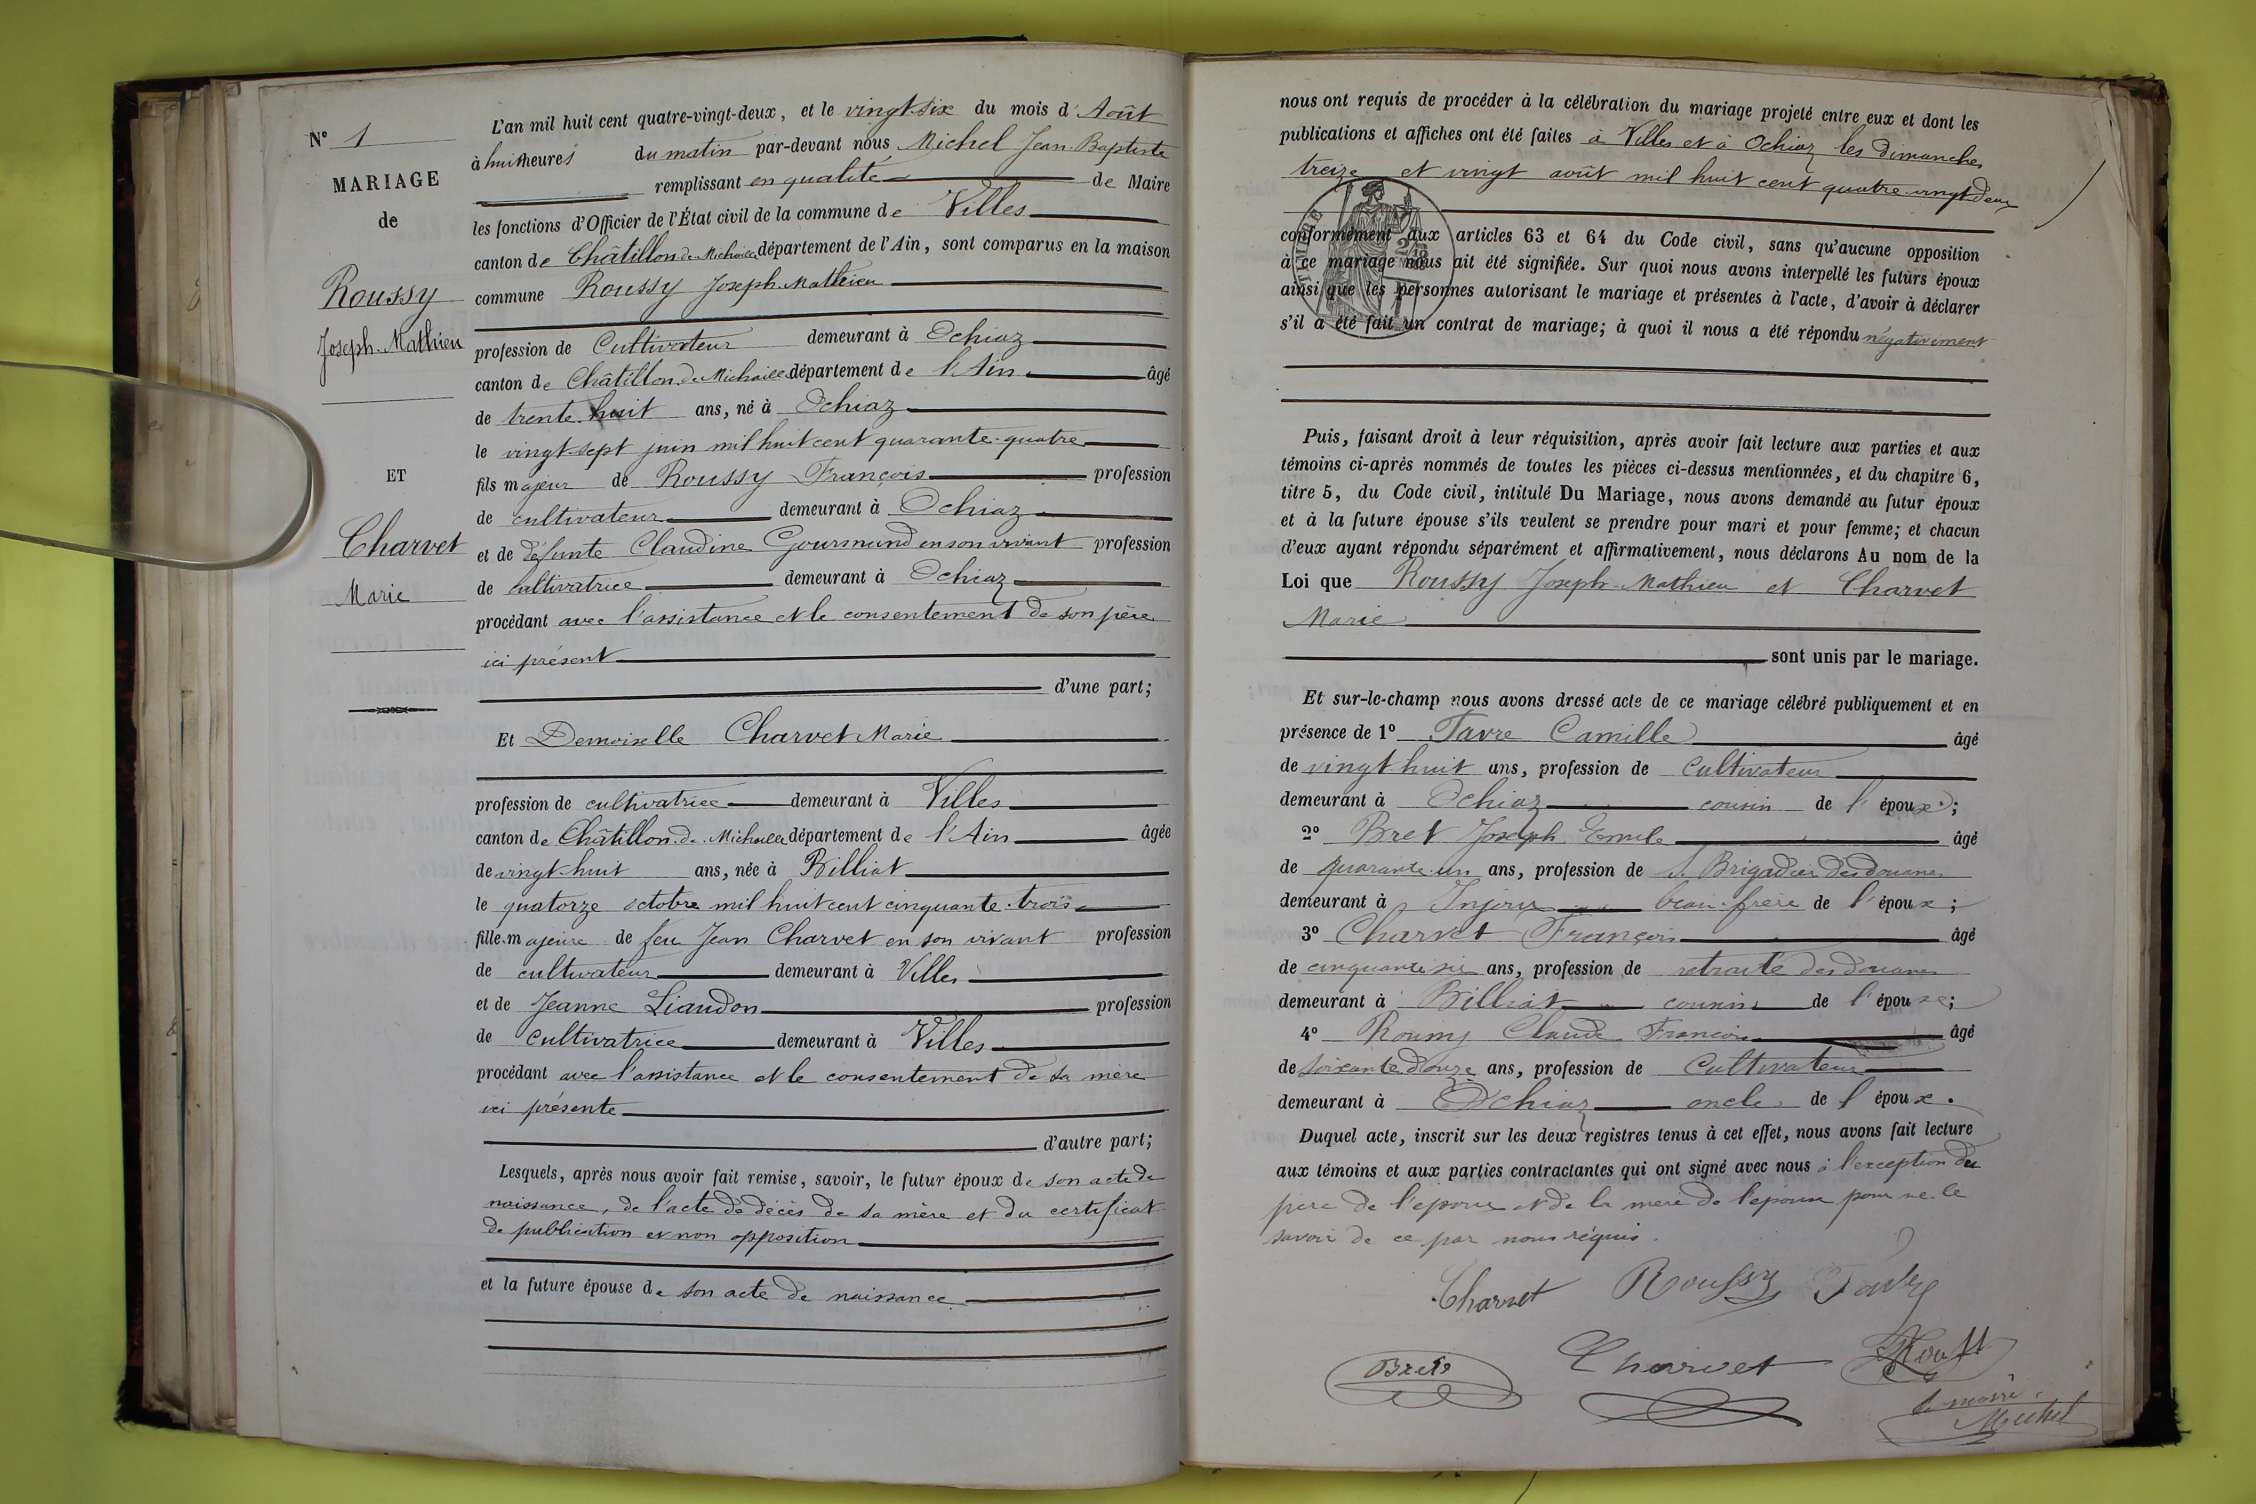 N° 1
MARIAGE
de
Roussy
Joseph-Mathieu
ET
Charvet
Marie
L'an mil huit cent quatre-vingt-deux, et le vingt-six du mois d'Août
à huit heures du matin par-devant nous Michel Jean-Baptiste
remplissant en qualité de Maire
les fonctions d'Officier de l'État civil de la commune de Villes
canton de Châtillon de Michaille département de l'Ain, sont comparus en la maison
commune Roussy Joseph-Mathieu
profession de Cultivateur demeurant à Ochiaz
canton de Châtillon de Michaille département de l'Ain âgé
de trente-huit ans, né à Ochiaz
le vingt-sept juin mil huit cent quarante-quatre
fils majeur de Roussy François profession
de cultivateur demeurant à Ochiaz
et de défunte Claudine Gourmand en son vivant profession
de cultivatrice demeurant à Ochiaz
procédant avec l'assistance et le consentement de son père
ici présent
d'une part;
Et Demoiselle Charvet Marie
profession de cultivatrice demeurant à Villes
canton de Châtillon de Michaille département de l'Ain âgée
de vingt-huit ans, née à Billiat
le quatorze octobre mil huit cent cinquante-trois
fille majeure de feu Jean Charvet en son vivant profession
de cultivateur demeurant à Villes
et de Jeanne Liaudon profession
de cultivatrice demeurant à Villes
procédant avec l'assistance et le consentement de sa mère
ici présente
d'autre part;
Lesquels, après nous avoir fait remise, savoir, le futur époux de son acte de
naissance, de l'acte de décès de sa mère et du certificat
de publication et non opposition
et la future épouse de son acte de naissance
nous ont requis de procéder à la célébration du mariage projeté entre eux et dont les
publications et affiches ont été faites à Villes et à Ochiaz les dimanches
treize et vingt août mil huit cent quatre-vingt-deux
conformément aux articles 63 et 64 du Code civil, sans qu'aucune opposition
à ce mariage nous ait été signifiée. Sur quoi nous avons interpellé les futurs époux
ainsi que les personnes autorisant le mariage et présentes à l'acte, d'avoir à déclarer
s'il a été fait un contrat de mariage; à quoi il nous a été répondu négativement
Puis, faisant droit à leur réquisition, après avoir fait lecture aux parties et aux
témoins ci-après nommés de toutes les pièces ci-dessus mentionnées, et du chapitre 6,
titre 5, du Code civil, intitulé Du Mariage, nous avons demandé au futur époux
et à la future épouse s'ils veulent se prendre pour mari et pour femme; et chacun
d'eux ayant répondu séparément et affirmativement, nous déclarons Au nom de la
Loi que Roussy Joseph-Mathieu et Charvet
Marie
sont unis par le mariage.
Et sur-le-champ nous avons dressé acte de ce mariage célébré publiquement et en
présence de 1° Favre Camille âgé
de vingt huit ans, profession de cultivateur
demeurant à Ochiaz cousin de l'époux;
2° Bret Joseph Emile âgé
de quarante-un ans, profession de Brigadier des douanes
demeurant à Injoux beau-frère de l'époux;
3° Charvet François âgé
de cinquante six ans, profession de retraité des douanes
demeurant à Billiat cousin de l'épouse;
4° Roussy Claude François âgé
de soixante douze ans, profession de Cultivateur
demeurant à Ochiaz oncle de l'époux.
Duquel acte, inscrit sur les deux registres tenus à cet effet, nous avons fait lecture
aux témoins et aux parties contractantes qui ont signé avec nous à l'exception du
père de l'époux et de la mère de l'épouse pour ne le
savoir de ce par nous réquis.
Charvet Roussy Favre
Bret Charvet
le maire
Michel